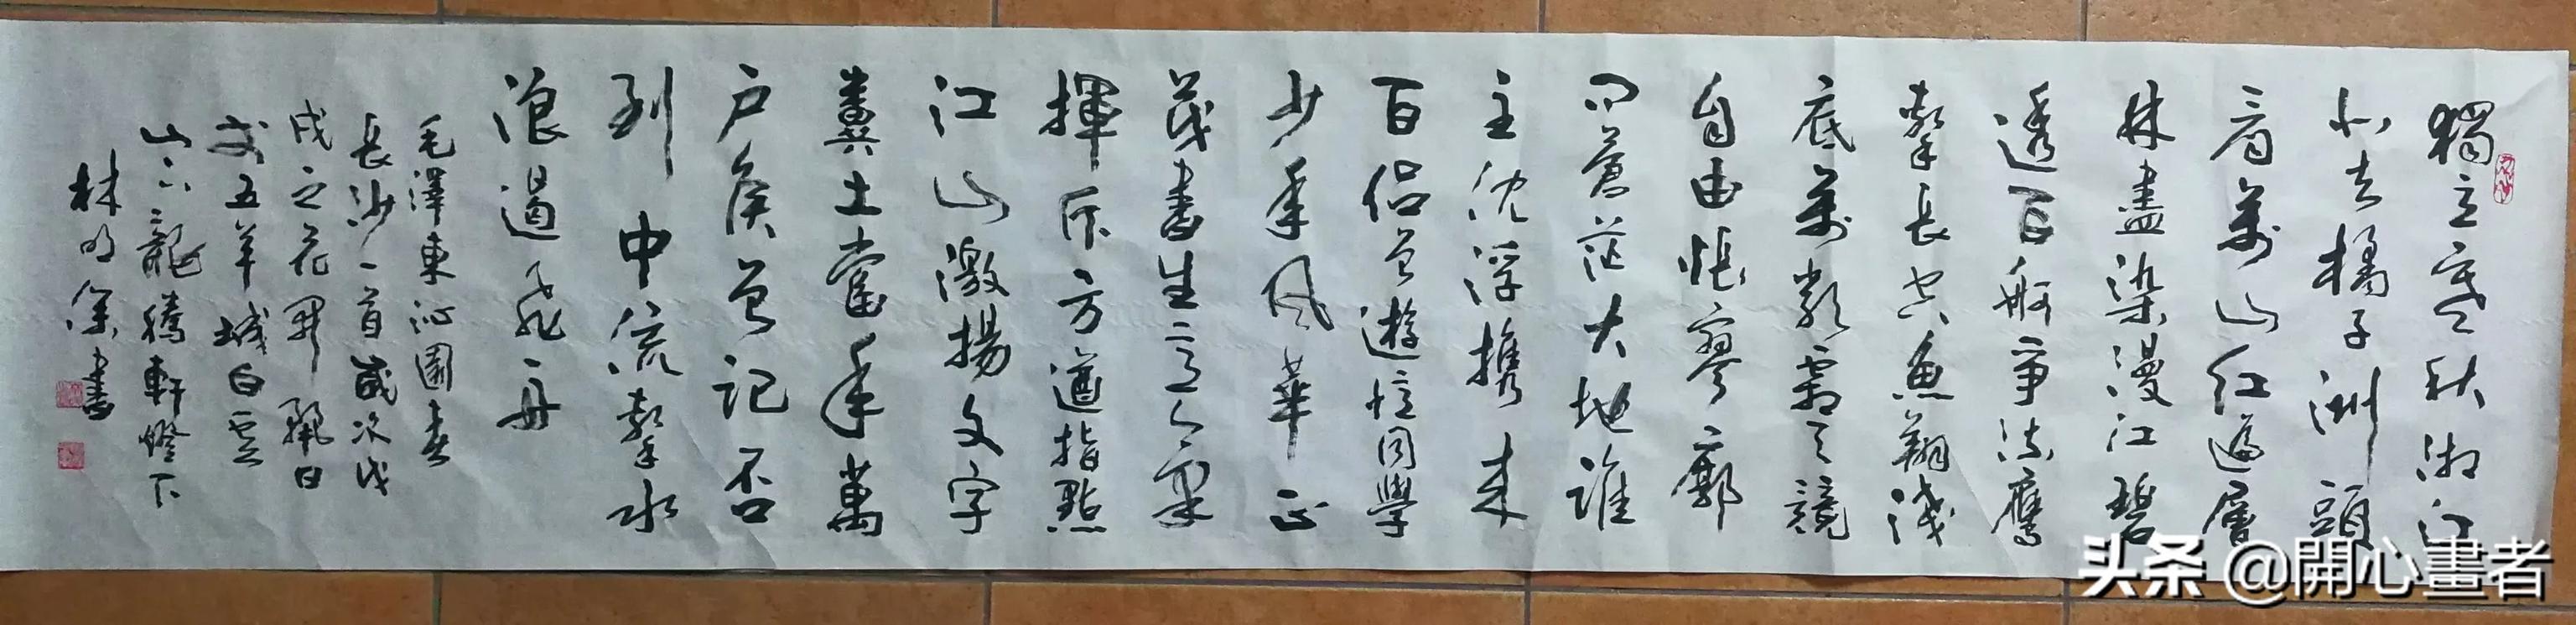 獨立寒秋湘江
北去橘子洲頭
看萬山紅遍層
林盡染漫江碧
透百舸爭流鷹
擊長空魚翔淺
底萬類霜天競
自由悵寥廓
問蒼茫大地誰
主沈浮攜來
百侶曾遊憶同學
少年風華正
茂書生意氣
揮斥方遒指點
江山激揚文字
糞土當年萬
戶侯曾記否
到中流擊水
浪遏飛舟
毛澤東沁園春
長沙一首歲次戊
戌之花月
五羊城白雲
山下龍騰軒燈下
林
書
头条 @開心畫者